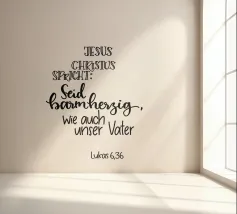 JESUS
CHRISTUS
SPRICHT:
Seid
barmherzig,
wie auch
unser Vater
Lukas 6,36